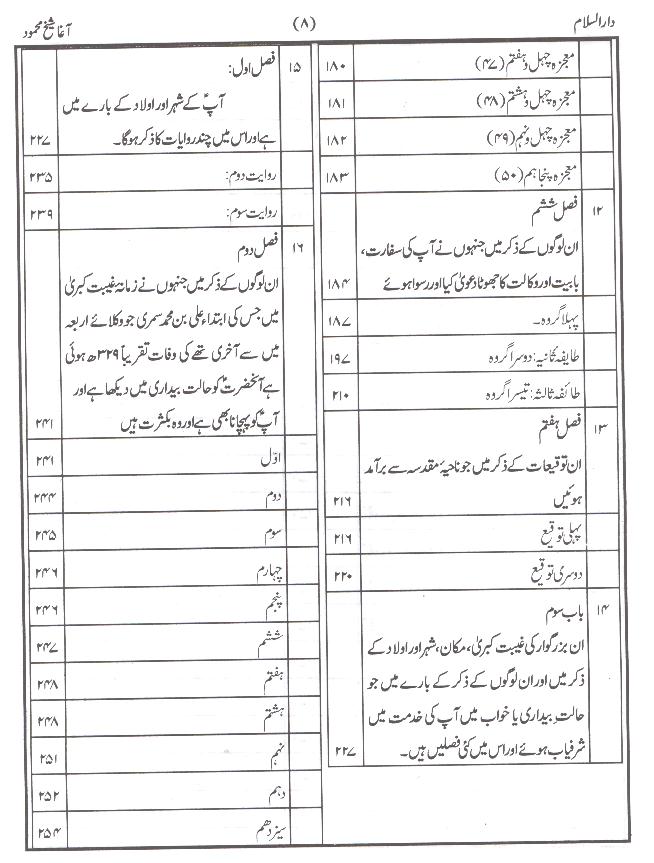 دارالسلام
(۸)
آغا شیخ محمود
معجزہ چہل و ہفتم (۴۷) ۱۸۰
معجزہ چہل و ہشتم (۴۸) ۱۸۱
معجزہ چہل و نہم (۴۹) ۱۸۲
معجزہ پنجاہم (۵۰) ۱۸۳
۱۲ فصل ششم
ان لوگوں کے ذکر میں جنہوں نے آپ کی سفارت،
بابیت اور وکالت کا جھوٹا دعویٰ کیا اور رسوا ہوئے ۱۸۴
پہلا گروہ۔ ۱۸۷
طایفہ ثانیہ: دوسرا گروہ ۱۹۷
طائفہ ثالثہ: تیسرا گروہ ۲۱۰
۱۳ فصل ہفتم
ان توقیعات کے ذکر میں جو ناحیۂ مقدسہ سے برآمد
ہوئیں ۲۱۶
پہلی توقیع ۲۱۶
دوسری توقیع ۲۲۰
۱۴ باب سوم
ان بزرگوار کی غیبت کبریٰ، مکان، شہر اور اولاد کے
ذکر میں اور ان لوگوں کے ذکر کے بارے میں جو
حالت بیداری یا خواب میں آپ کی خدمت میں
شرفیاب ہوئے اور اس میں کئی فصلیں ہیں۔ ۲۲۷
۱۵ فصل اول:
آپؑ کے شہر اور اولاد کے بارے میں
ہے اور اس میں چند روایات کا ذکر ہوگا۔ ۲۲۷
روایت دوم: ۲۳۵
روایت سوم: ۲۳۹
۱۶ فصل دوم
ان لوگوں کے ذکر میں جنہوں نے زمانۂ غیبت کبریٰ
میں جس کی ابتداء علی بن محمد سمری جو وکلائے اربعہ
میں سے آخری تھے کی وفات تقریباً ۳۲۹ھ ہوئی
ہے آنحضرتؑ کو حالت بیداری میں دیکھا ہے اور
آپؑ کو پہچانا بھی ہے اور وہ بکثرت ہیں ۲۴۱
اوّل ۲۴۱
دوم ۲۴۴
سوم ۲۴۵
چہارم ۲۴۶
پنجم ۲۴۶
ششم ۲۴۷
ہفتم ۲۴۸
ہشتم ۲۴۸
نہم ۲۵۱
دہم ۲۵۲
سیزدھم ۲۵۴